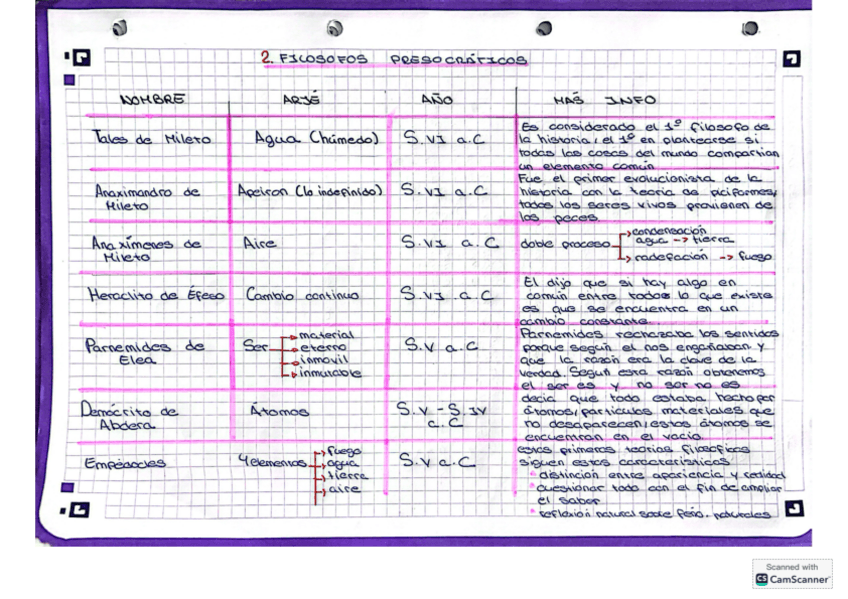 2. FILOSOFOS PRESOCRÁTICOS
NOMBRE ARJÉ AÑO MÁS INFO
Tales de Mileto Agua (húmedo) S.VI a.C
Es considerado el 1º filosofo de
la historia, el 1º en plantearse si
todas las cosas del mundo compartian
un elemento común
Anaximandro de
Mileto
Apeiron (lo indefinido) S.VI a.C
Fue el primer evolucionista de la
historia con la teoria de piciformes,
todos los seres vivos provienen de
los peces.
Anaxímenes de
Mileto
Aire S.VI a.C
doble proceso
condensación
agua -> tierra
radefación -> fuego
Heraclito de Éfeso Cambio continuo S.VI a.C
El dijo que si hay algo en
común entre todos lo que existe
es que se encuentra en un
cambio constante.
Parnemides de
Elea
Ser
material
eterno
inmovil
inmutable
S.V a.C
Parnemides rechazaba los sentidos
porque según el nos engañaban y
que la razón era la clave de la
verdad. Segun esta razón obtenemos
el ser es y no ser no es
Demócrito de
Abdera
Átomos
S.V - S.IV
a.C
decia que todo estaba hecho por
átomos, particulas materiales que
no desaparecen, estos átomos se
encuentran en el vacio.
Empédocles 4 elementos
fuego
agua
tierra
aire
S.V a.C
estas primeras teorias filosoficas
siguen estas caracteristicas
• distinción entre apariencia y realidad
• cuestionar todo con el fin de ampliar
el saber
• reflexión natural sobre feno. naturales
Scanned with
CS CamScanner